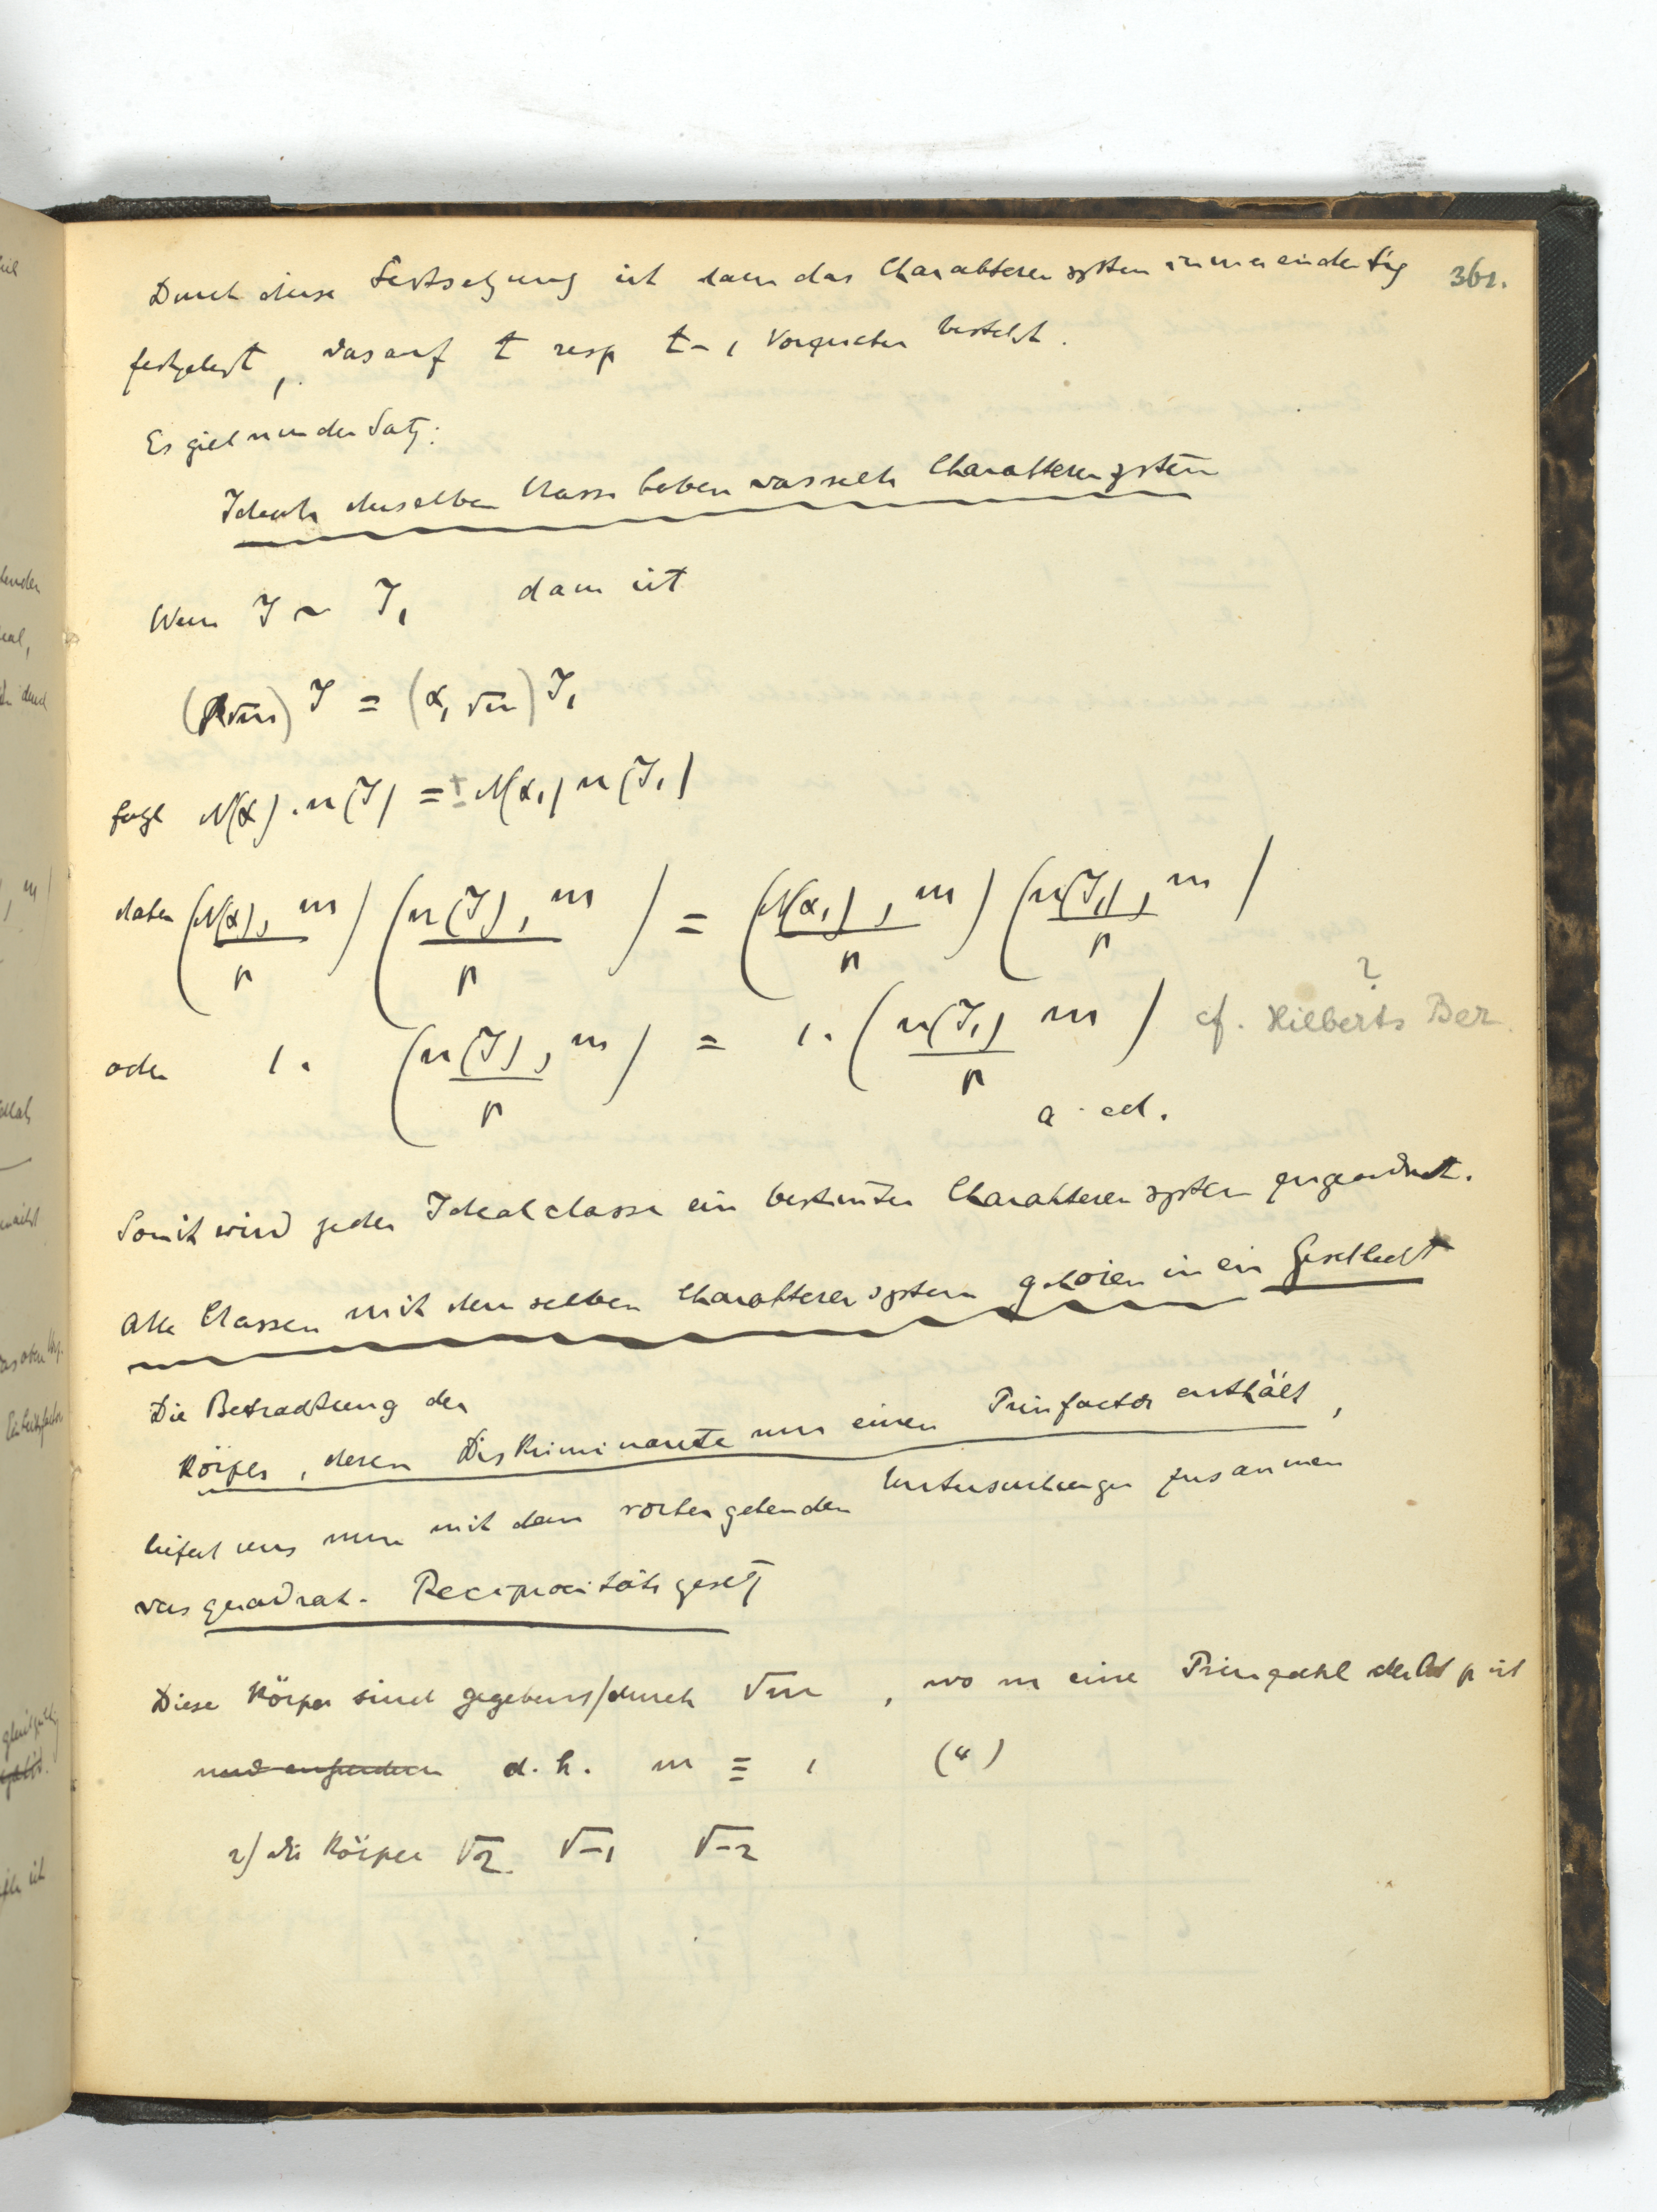 Durch diese Festsetzung ist dann das Charakterensystem immer eindeutig 361.
festgelegt, das auf t resp t-1 Vorzeichen besteht.
Es gielt nun der Satz:
Ideale derselben Classe haben dasselbe Charakterensystem
Wenn J ~ J₁ dann ist
(α, √m) J = (α₁ √m) J₁
folgt N(α) . n(J) = ± N(α₁) n(J₁)
daher (N(α), m / p) (n(J), m / p) = (N(α₁), m / p) (n(J₁), m / p)
?
oder 1 . (n(J), m / p) = 1 . (n(J₁) m / p) cf. Hilberts Ber.
q. ed.
Somit wird jeder Idealclasse ein bestimtes Charakterensystem zugeordnet.
Alle Classen mit demselben Charakterensystem gehören in ein Geschlecht
Die Betrachtung der
Körper, deren Diskriminante nur einen Primfactor enthält,
liefert uns nun mit den vorhergehenden Untersuchungen zusammen
das quadrat. Reciprocitätsgesetz
Diese Körper sind gegeben 1/ durch √m , wo m eine Primzahl der Art p ist
und ausserdem d.h. m ≡ 1 (4)
2/ die Körper √2 √-1 √-2